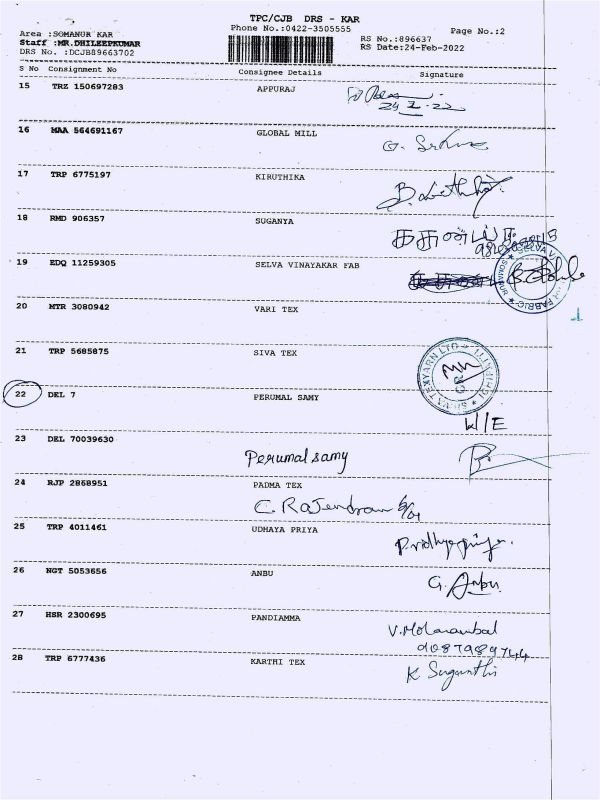 TPC/CJB DRS - KAR
Phone No.:0422-3505555
Page No.:2
Area :SOMANUR KAR
Staff :MR.DHILEEPKUMAR
DRS No. :DCJB89663702
RS No.:896637
RS Date:24-Feb-2022
S No Consignment No Consignee Details Signature
15 TRZ 150697283 APPURAJ
16 MAA 564691167 GLOBAL MILL
17 TRP 6775197 KIRUTHIKA
18 RMD 906357 SUGANYA
19 EDQ 11259305 SELVA VINAYAKAR FAB
20 MTR 3080942 VARI TEX
21 TRP 5685875 SIVA TEX
22 DEL 7 PERUMAL SAMY
W/E
23 DEL 70039630
Perumal samy
24 RJP 2868951 PADMA TEX
C. Rajendran
25 TRP 4011461 UDHAYA PRIYA
P.vidhyapriya.
26 NGT 5053656 ANBU
G. Anbu
27 HSR 2300695 PANDIAMMA
28 TRP 6777436 KARTHI TEX
K Suganthi